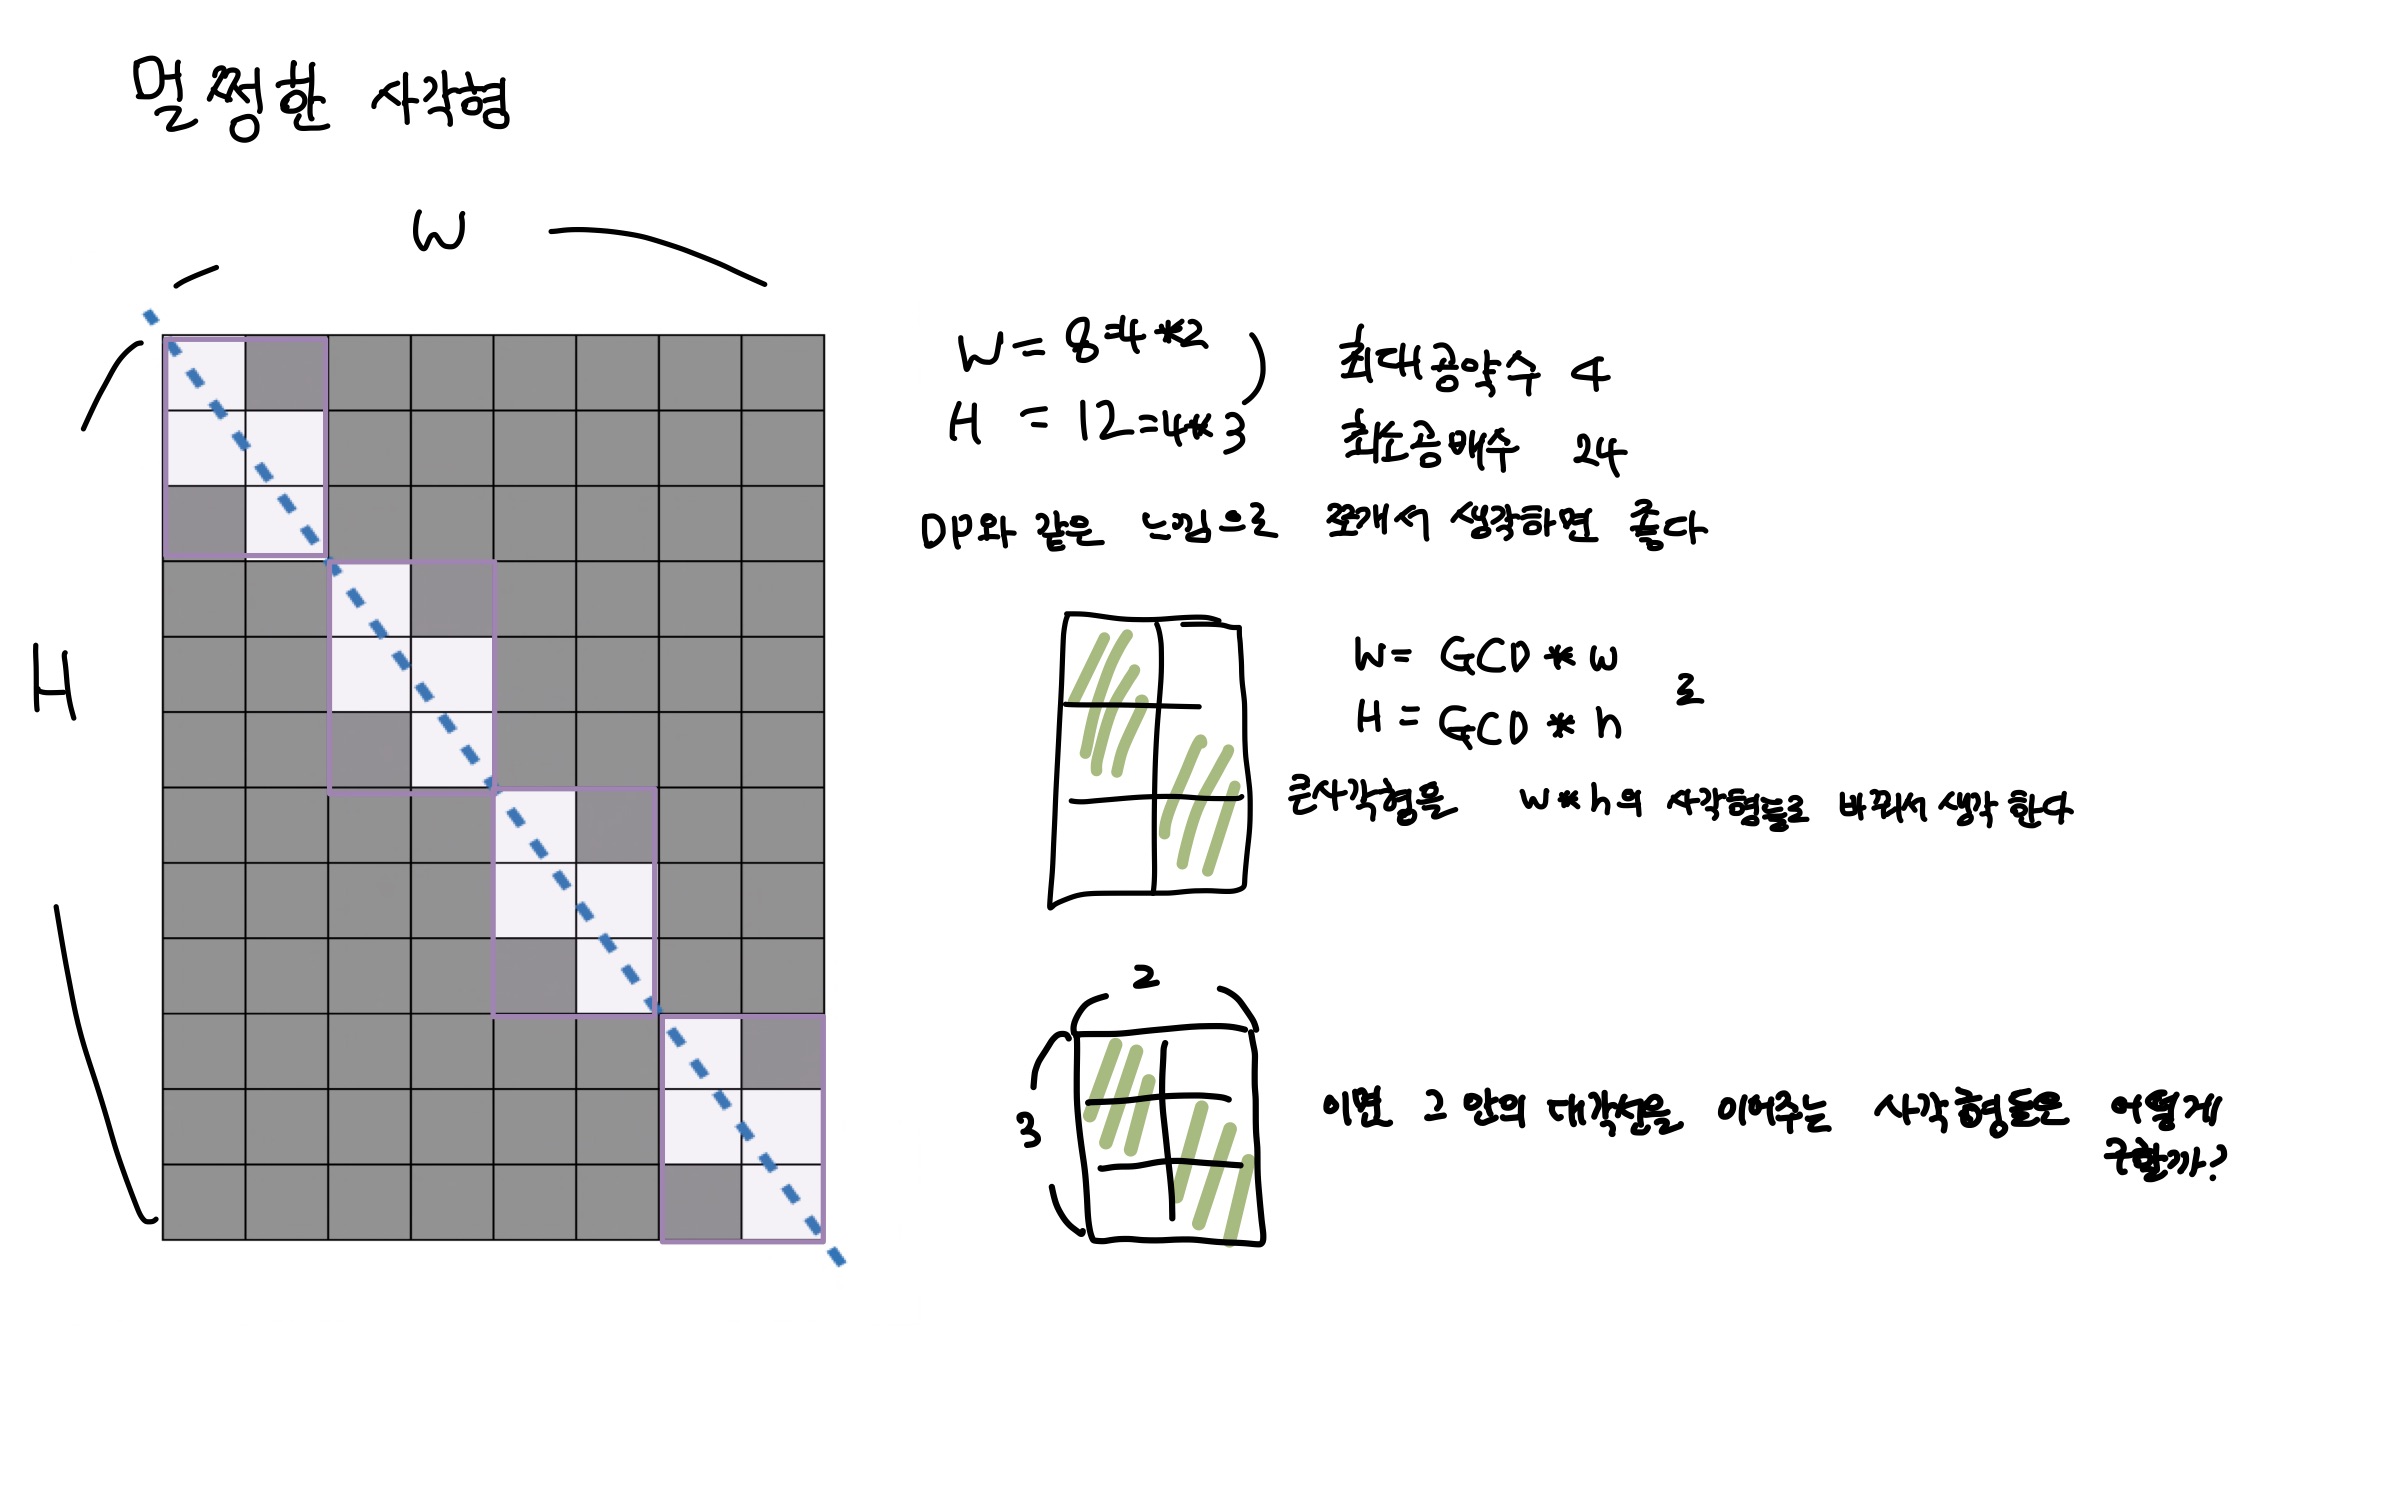 멀쩡한 사각형
W
W = 8 = 4 * 2
최대공약수 4
H = 12 = 4 * 3
최소공배수 24
DP와 같은 느낌으로 쪼개서 생각하면 좋다
H
W = GCD * w
H = GCD * h 로
큰사각형을 w * h의 사각형들로 바꿔서 생각 한다
2
3
이면 그 안의 대각선을 이어주는 사각형들은 어떻게
구할까?